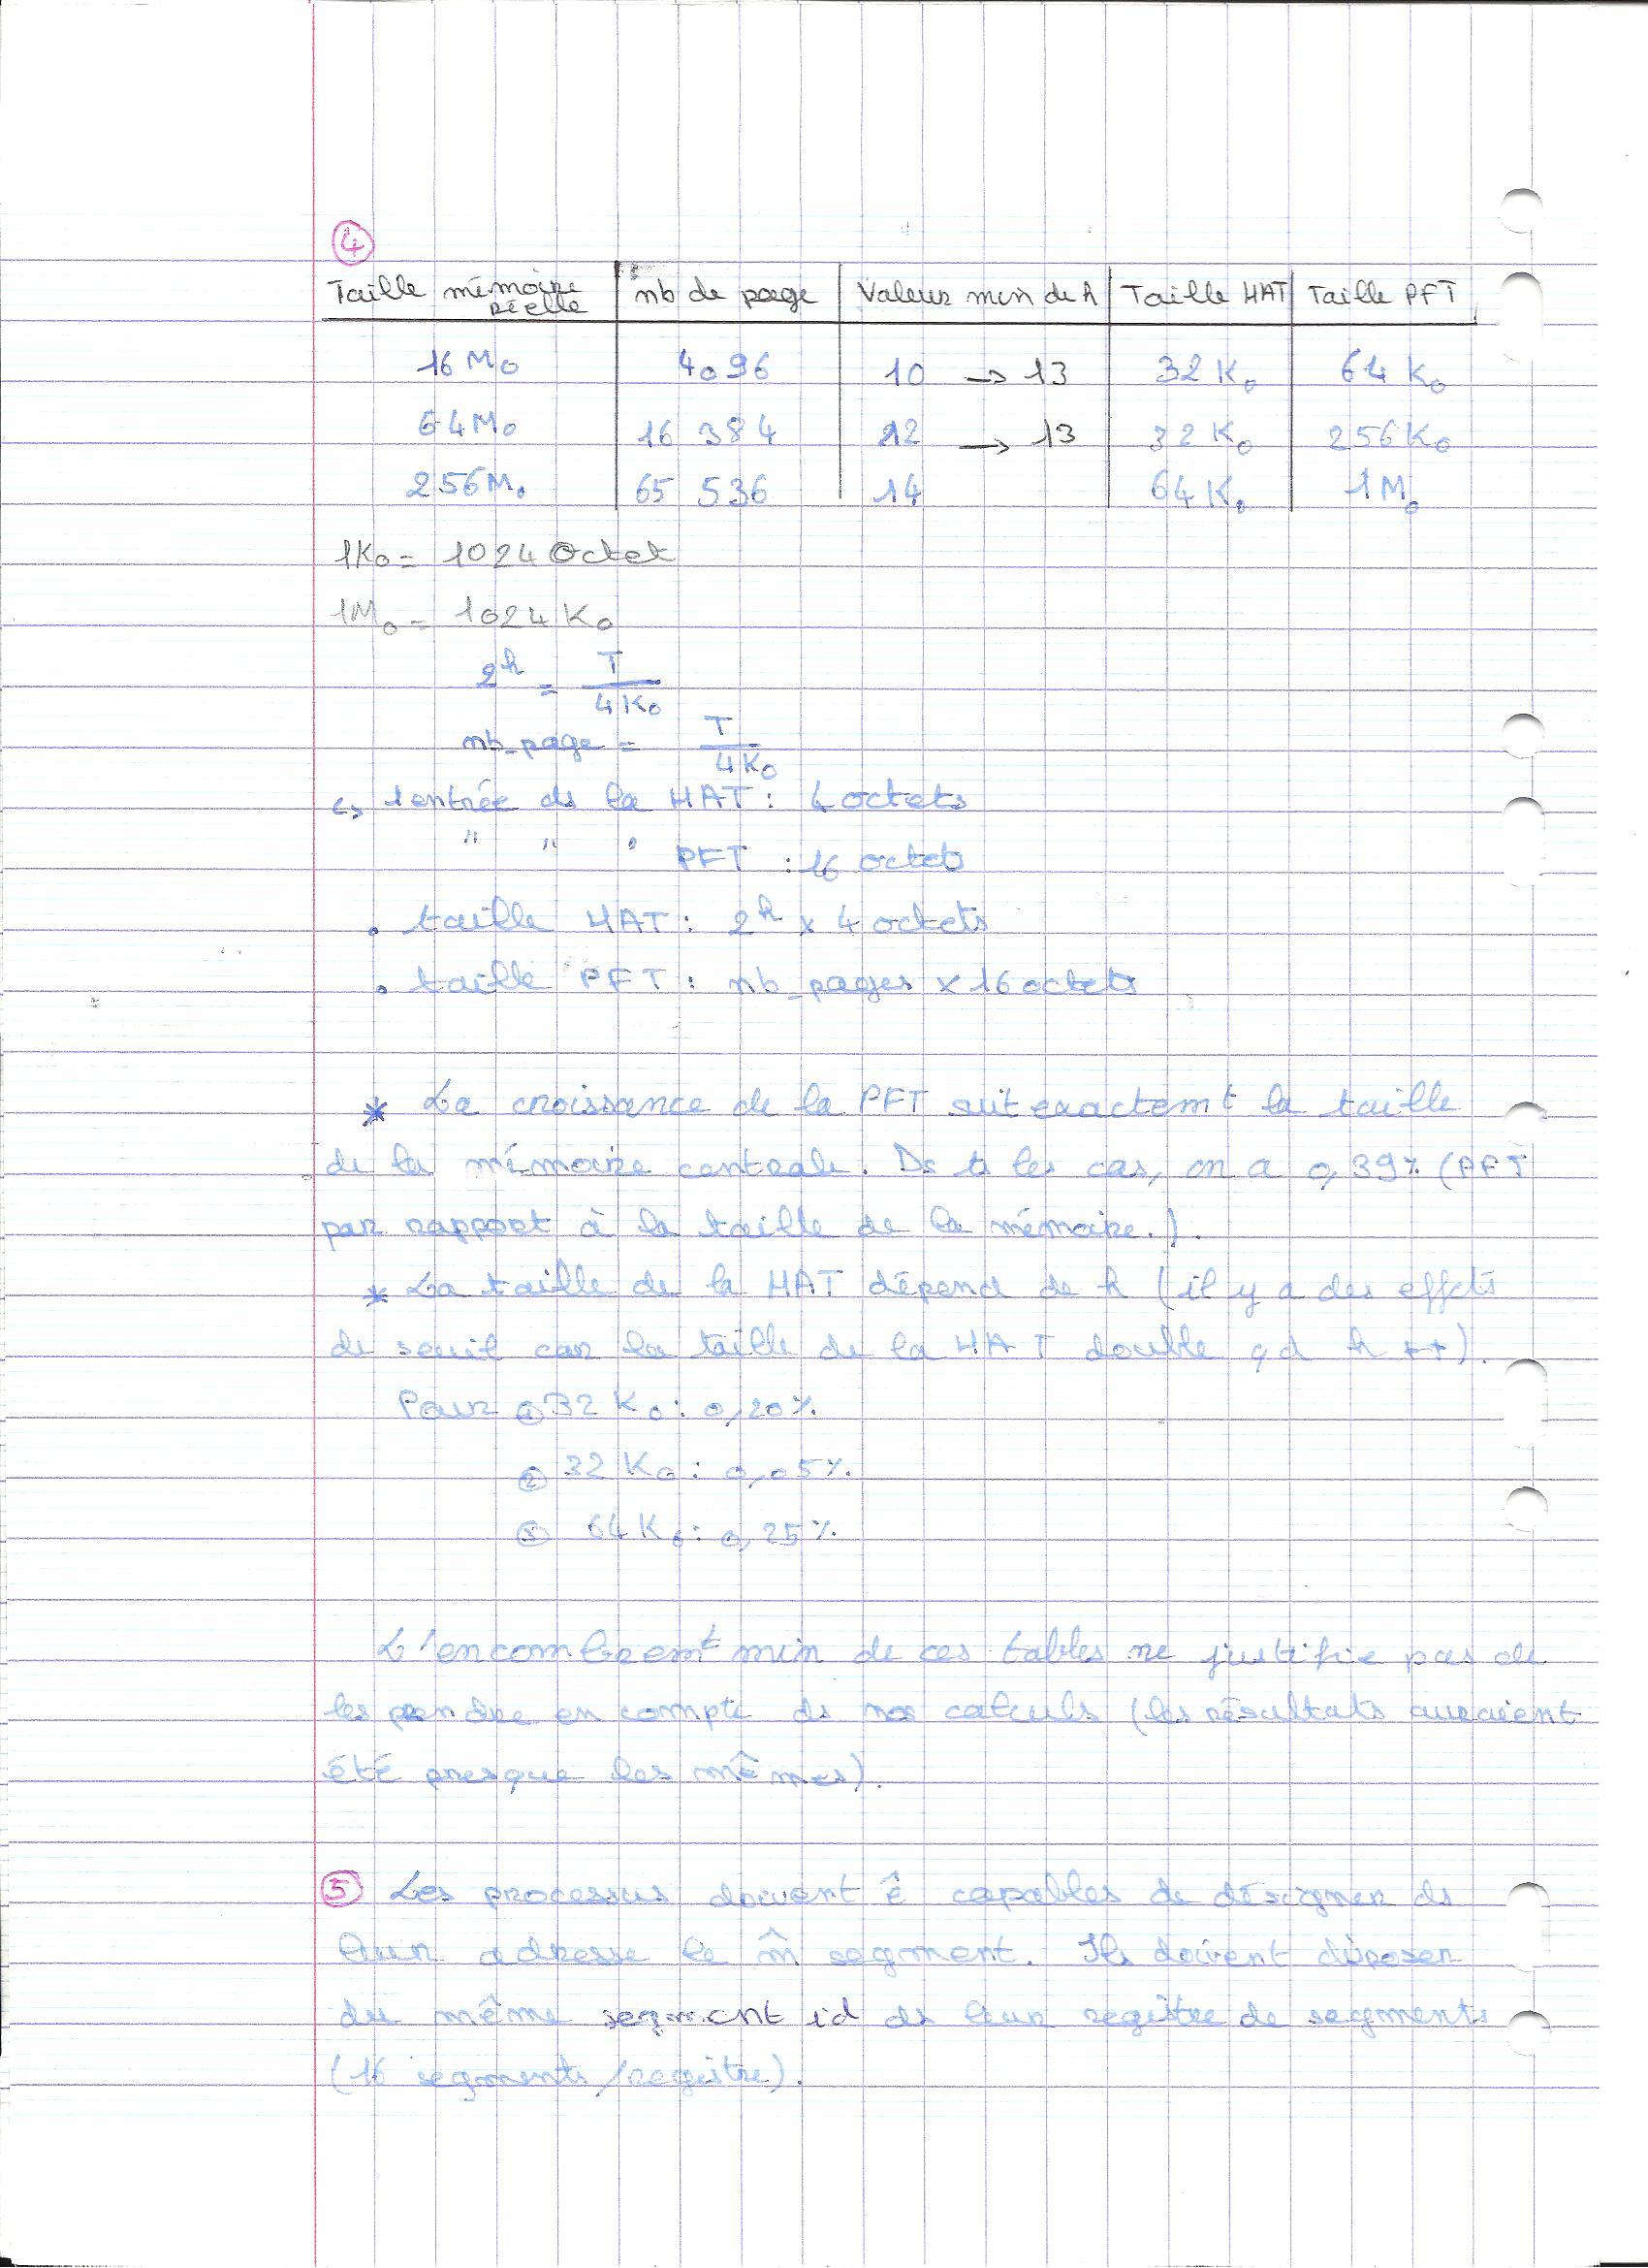 4
Taille mémoire réelle | nb de page | Valeur min de h | Taille HAT | Taille PFT
16 Mo | 4096 | 10 → 13 | 32 Ko | 64 Ko
64 Mo | 16 384 | 12 → 13 | 32 Ko | 256 Ko
256 Mo | 65 536 | 14 | 64 Ko | 1 Mo
1Ko = 1024 Octet
1Mo = 1024 Ko
2^h = T / 4 Ko
nb_page = T / 4 Ko
↪ 1 entrée ds la HAT : 4 octets
" " " PFT : 16 octets
• taille HAT : 2^h x 4 octets
• taille PFT : nb_pages x 16 octets
* La croissance de la PFT suit exactemt la taille
de la mémoire centrale. Ds ts les cas, on a 0,39% (PFT
par rapport à la taille de la mémoire.).
* La taille de la HAT dépend de h (il y a des effets
de seuil car la taille de la HAT double qd h ++).
Pour ① 32 Ko : 0,20%.
② 32 Ko : 0,05%.
③ 64 Ko : 0,25%.
L'encombremt min de ces tables ne justifie pas de
les prendre en compte ds nos calculs (les résultats auraient
été presque les mêmes).
5 Les processus doivent ê capables de désigner ds
leur adresse le m̂ segment. Ils doivent disposer
du même segment id ds leur registre de segments
(16 segments / registre).